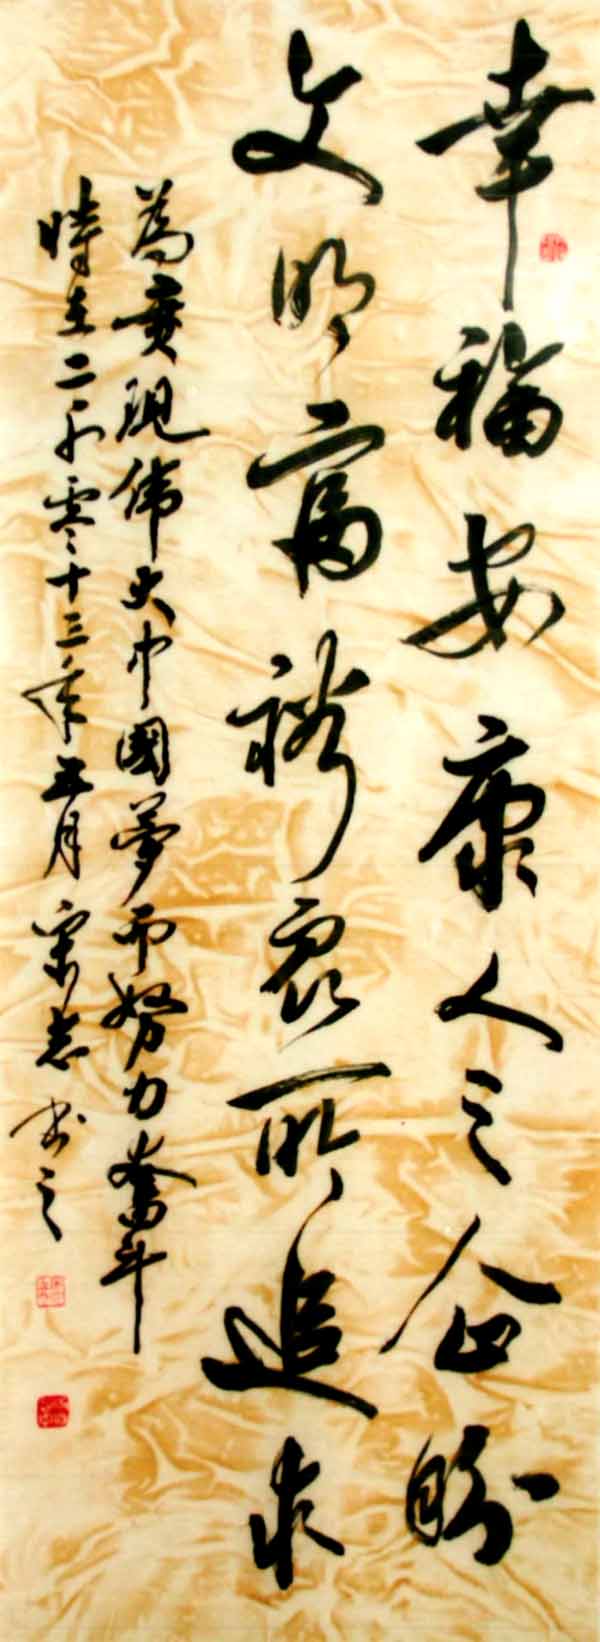 幸福安康人之企盼
文明富裕众所追求
為實現伟大中國夢而努力奮斗
時在二千零十三年五月宋志书之